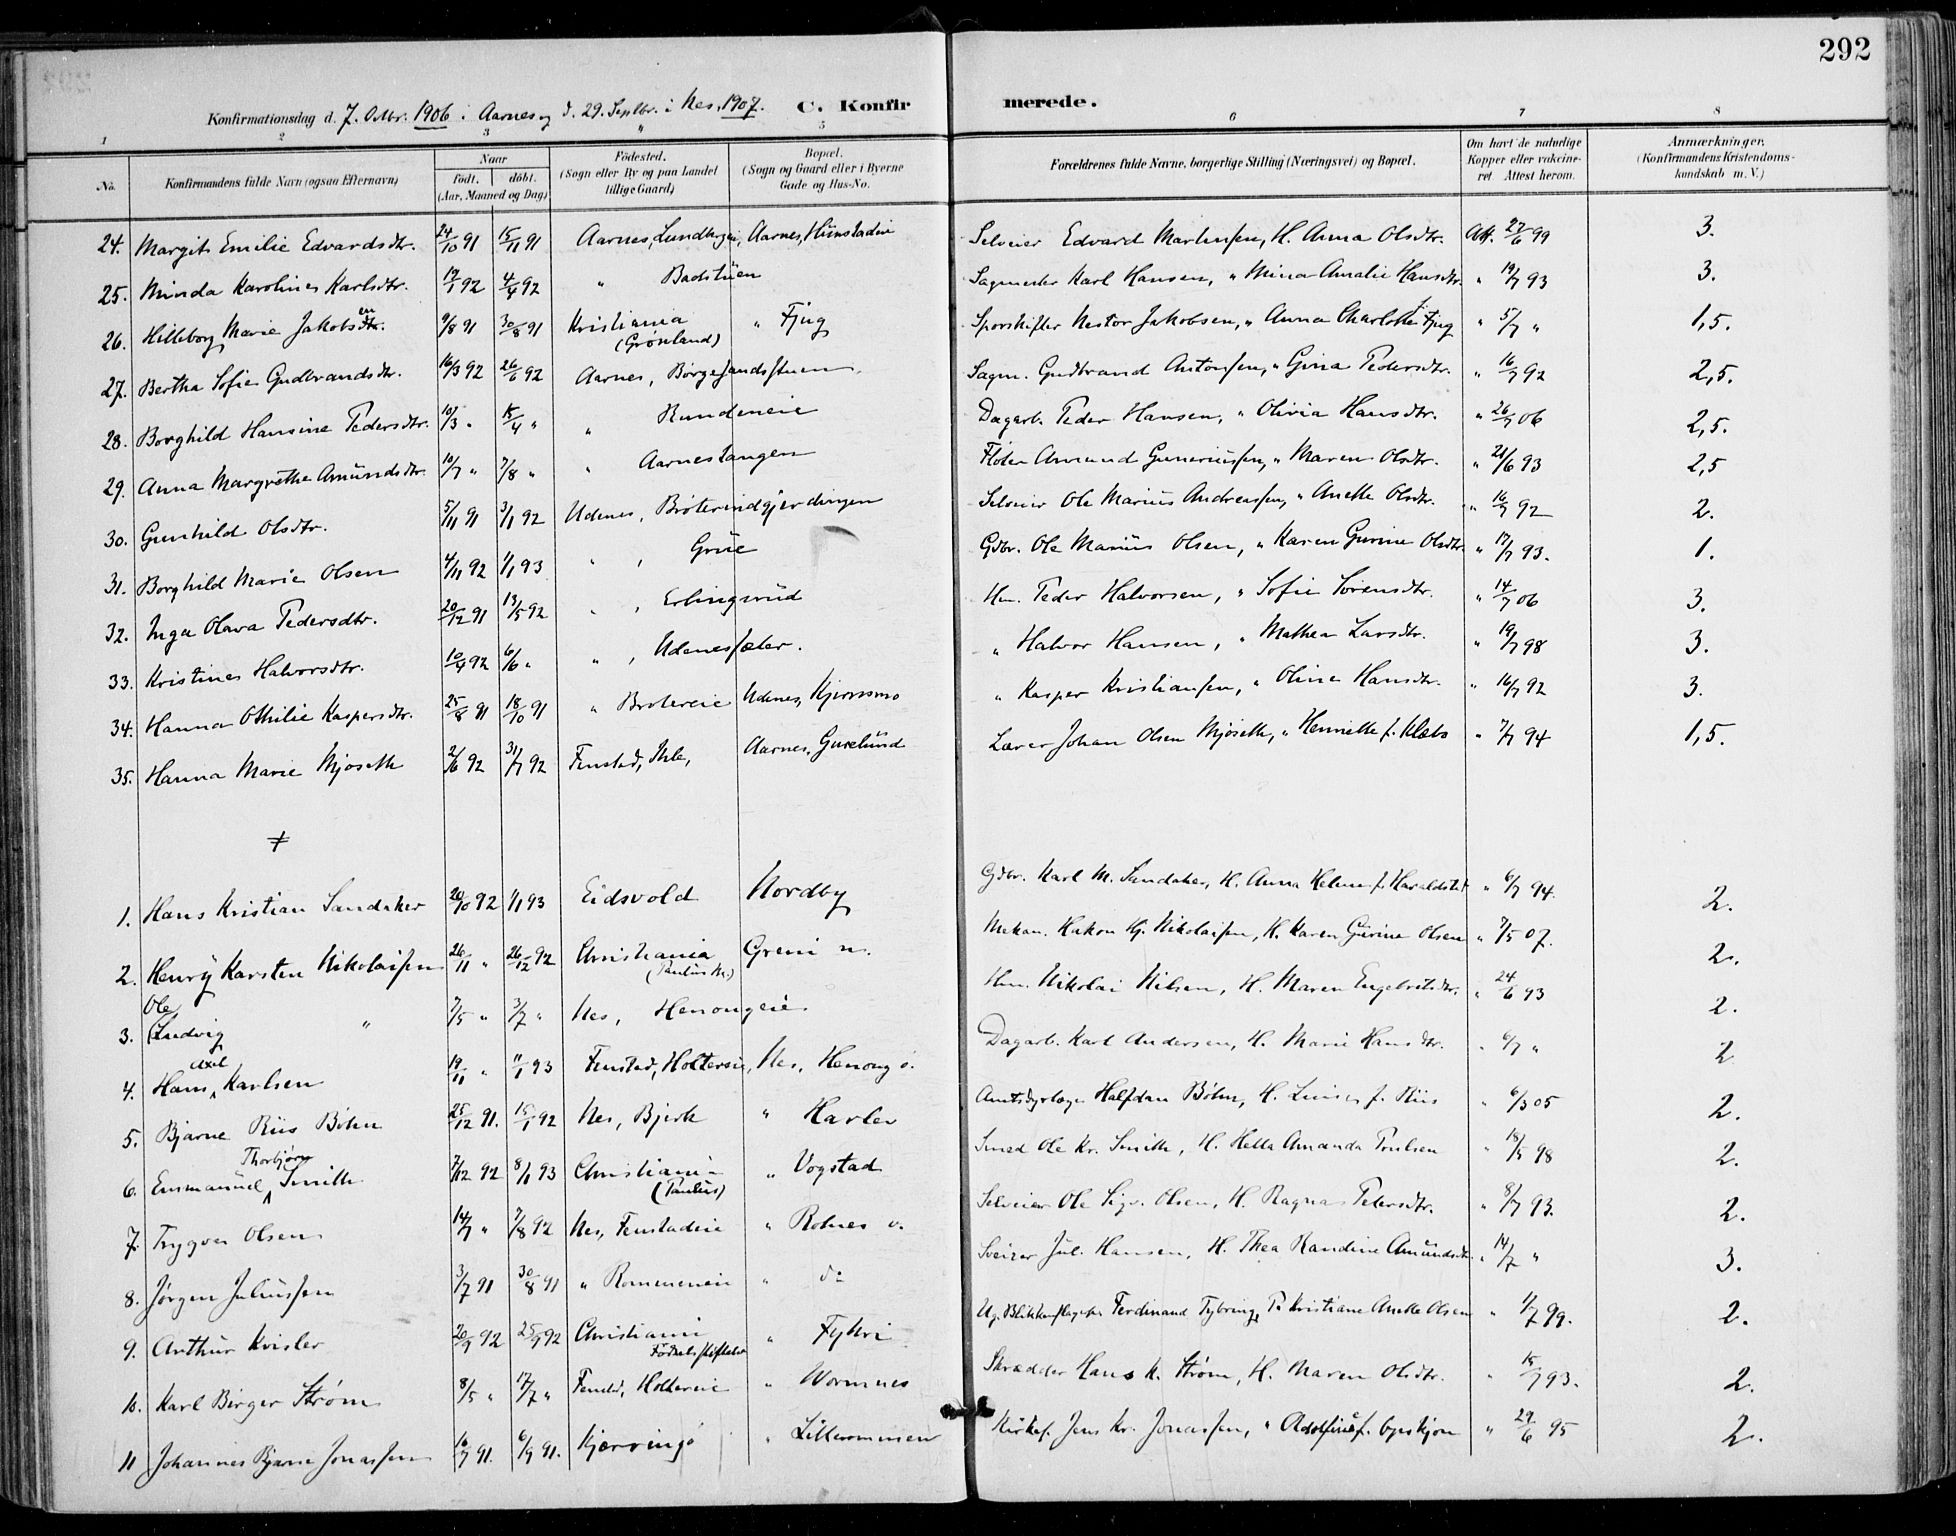 292
Konfirmationsdag d. 7. Oktbr. 1906 i Aarnes og d. 29. Septbr. i Nes. 1907. C. Konfir merede.
1 2 3 5 6 7 8
No. Konfirmandens fulde Navn (ogsaa Efternavn) Naar födt. döbt. (Aar, Maaned og Dag) Födested. (Sogn eller By og paa Landet tillige Gaard) Bopæl. (Sogn og Gaard eller i Byerne Gade og Hus-No. Forældrenes fulde Navne, borgerlige Stilling (Næringsvei) og Bopæl. Om havt de naturlige Kopper eller vakcineret. Attest herom. Anmærkninger. (Konfirmandens Kristendomskundskab m. V.)
24. Margit Emilie Edvardsdtr. 24/10 91 15/11 91 Aarnes, Aarnes, Hunstadeie Selveier Edvard Martinsen, H. Anna Olsdtr. Att. 27/6 99 3.
25. Minda Karoline Karlsdtr. 19/1 92 4/4 92 " Badstuen Sagmester Karl Hansen, " Mina Amalie Hansdtr. " 19/7 93 3.
26. Hilleborg Marie Jakobsen 9/8 91 30/8 91 Kristiania (Grønland) " Fjug Sporskifter Nestor Jakobsen, " Anna Charlotte Fjug " 5/7 " 1,5.
27. Bertha Sofie Gudbrandsdtr. 16/3 92 26/6 92 Aarnes, Børgesandstuen Sagm. Gudbrand Antonsen, " Gina Pedersdtr. " 16/7 92 2,5.
28. Borghild Hansine Pedersdtr. 10/3 " 15/4 " " Rundeneie Dagarb. Peder Hansen, " Olivia Hansdtr. " 26/7 06 2,5.
29. Anna Margrethe Amundsdtr. 10/7 " 7/8 " " Aarnestangen Fløter Amund Gunariussen, " Maren Olsdtr. " 21/6 93 2,5
30. Gunhild Olsdtr. 5/11 91 3/1 92 Udenes, Brøterindgjerdingen Selveier Ole Marius Andreassen, " Anette Olsdtr. " 16/7 92 2.
31. Borghild Marie Olsen 4/11 92 1/1 93 " , Grue Gdbr. Ole Marius Olsen, " Karen Gurine Olsdtr. " 17/7 93. 1.
32. Inga Olava Pedersdtr. 20/12 91 13/5 92 " , Erlingsrud Hm. Peder Halvorsen, " Sofie Sørensdtr. " 14/7 06 3.
33. Kristine Halvorsdtr. 10/4 92 6/6 " " , Udenessæter. " Halvor Hansen, " Mathea Larsdtr. " 19/7 98 3.
34. Hanna Othilie Kaspersdtr. 25/8 91 18/10 91 " Brøtereie Udenes, Kjernsmo " Kasper Kristiansen, " Oline Hansdtr. " 16/7 92 3.
35. Hanna Marie Mjøseth 2/6 92 31/7 92 Fenstad, Aarnes, Gurelund Lærer Johan Olsen Mjøseth, " Henriette f. Klæbo " 7/7 94 1,5.
1. Hans Kristian Sandaker 20/10 92 1/1 93 Eidsvold Nordby Gdbr. Karl M. Sandaker, H. Anna Helene f. Haraldstad " 6/7 94. 2.
2. Henry Karsten Nikolaisen 26/11 " 26/12 92 Christiania (Paulus M.) Greni n. Mekan. Hakon Hj. Nikolaisen, H. Karen Gurine Olsen " 7/5 07. 2.
3. Ole Ludvig " 7/5 " 3/7 " Nes, Henongeie Hm. Nikolai Nilsen, H. Maren Engebretsdtr. " 24/6 93 2.
4. Hans Axel Karlsen 19/11 " 11/1 93 Fenstad, Holtereie, Nes, Henong ø. Dagarb. Karl Andersen, H. Marie Hansdtr. " 6/7 " 2
5. Bjarne Riis Bøhn 25/12 91. 15/1 92 Nes, Bjerk " Karlev Amtsdyrlæge Halfdan Bøhn, H. f. Riis " 6/3 05 2.
6. Emmanuel Thorbjørn Smith 7/12 92 8/1 93 Christiania (Paulus) " Vogstad Smed Ole Kr. Smith, H. Hella Amanda Poulsen " 18/5 98 2.
7. Trygve Olsen 14/7 " 7/8 92 Nes, Fenstadeie " Rolnes v. Selveier Ole Sigv. Olsen, H. Ragna Pedersdtr. " 8/7 93. 2.
8. Jørgen Juliussen 3/7 91 30/8 91 " Rommeneie " do Sveizer Jul. Hansen, H. Thea Randine Amundsdtr. " 14/7 " 3.
9. Arthur Kvisler 20/9 92 25/9 92 Christiania Fødselsstiftelse " Fyhri Ug. Blikkenslager Ferdinand Tybring, P. Kristiane Anette Olsen " 1/7 99. 2.
10. Karl Birger Strøm 8/5 " 17/7 " Fenstd, Holtereie " Wormnes Skrædder Hans K. Strøm, H. Maren Olsdtr. " 15/7 93. 2.
11 Johannes Bjarne Jonassen 16/7 91. 6/9 91. Kjærringø " Lillerommen Kirkes. Jens Kr. Jonassen, " Adolfine f. " 29/6 95 2.